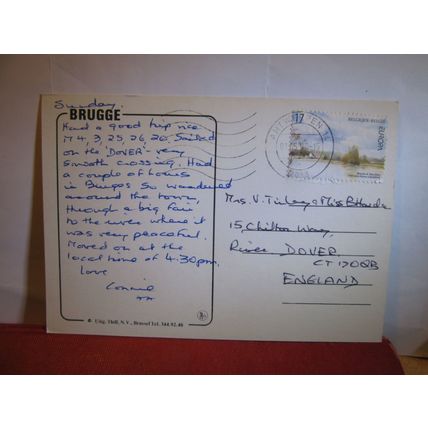 Sunday.
BRUGGE
Had a good trip nice
M 4, 3, 25, 26, 20, Sailed
on the 'DOVER' - very
smooth crossing. Had
a couple of hours
in Bruges so wandered
around the town,
through a big fair
to the river where it
was very peaceful.
Moved on at the
local time of 4.30pm.
Love
Connie
Uitg. Thill, N.V., Brussel Tel. 344.92.46
17
BELGIQUE-BELGIË
EUROPA
Mrs. V. Tinley & Miss B
15, Chilton Way,
River DOVER
CT17 0QB
ENGLAND